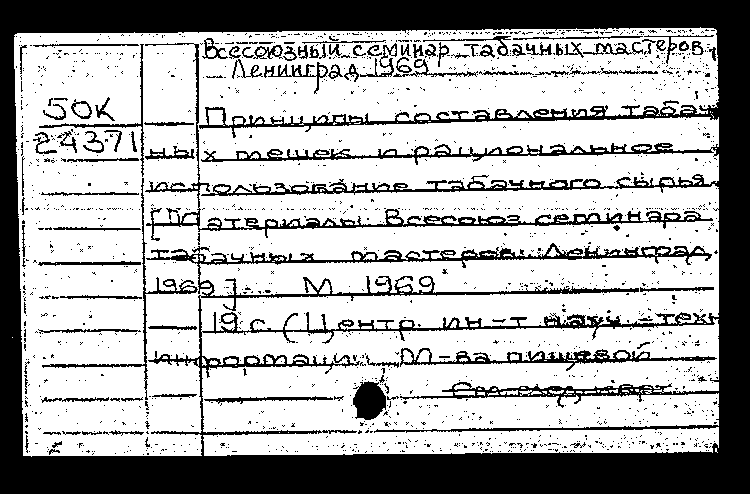 Всесоюзный семинар табачных мастеров,
Ленинград 1969
50К
24371
Принципы составления табач
ных мешек и рациональное
использование табачного сырья.
[Материалы Всесоюз семинара
табачных мастеров. Ленинград,
1969] М, 1969
19 с. (Центр. ин-т науч.-техн
информации М-ва пищевой
См. след. карт